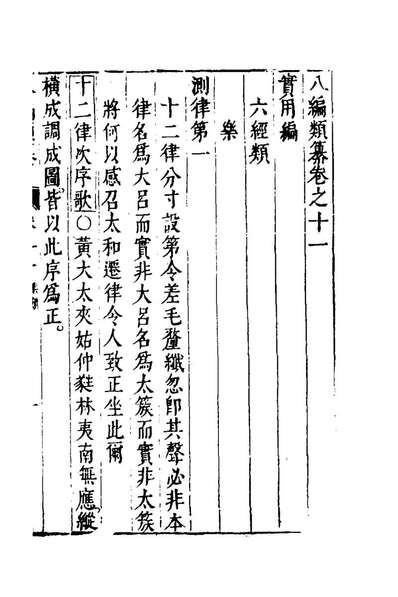 八編類纂卷之十一
實用編
六經類
樂
測律第一
十二律分寸設第令差毛釐纖忽卽其聲必非本
律名爲大呂而實非大呂名爲太簇而實非太簇
將何以感召太和遷律令人致正坐此爾
十二律次序歌〇黃大太夾姑仲蕤林夷南無應縱
橫成調成圖皆以此序爲正。